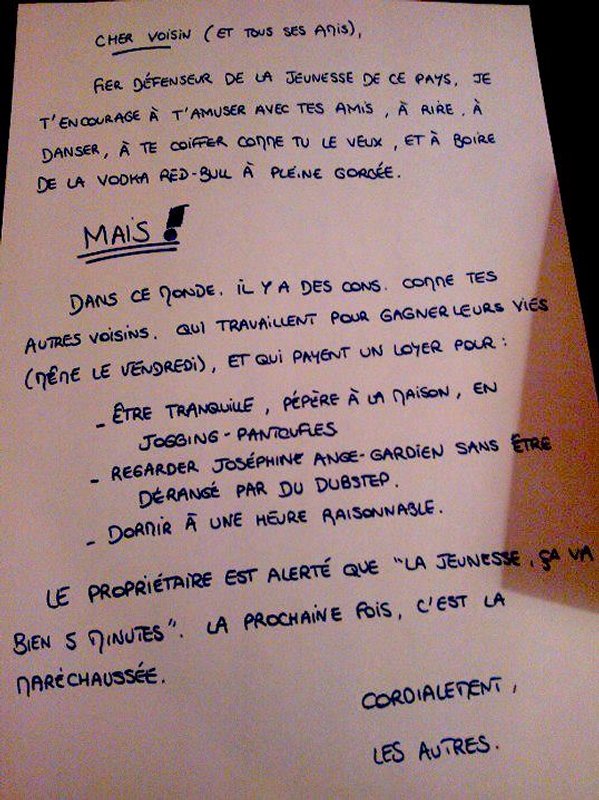 CHER VOISIN (ET TOUS SES AMIS),
FIER DÉFENSEUR DE LA JEUNESSE DE CE PAYS, JE
T'ENCOURAGE À T'AMUSER AVEC TES AMIS, À RIRE, À
DANSER, À TE COIFFER COMME TU LE VEUX, ET À BOIRE
DE LA VODKA RED-BULL À PLEINE GORGÉE.
MAIS !
DANS CE MONDE, IL Y A DES CONS. COMME TES
AUTRES VOISINS. QUI TRAVAILLENT POUR GAGNER LEURS VIES
(MÊME LE VENDREDI), ET QUI PAYENT UN LOYER POUR :
- ÊTRE TRANQUILE, PÉPÈRE À LA MAISON, EN
JOGGING-PANTOUFLES
- REGARDER JOSÉPHINE ANGE-GARDIEN SANS ÊTRE
DÉRANGÉ PAR DU DUBSTEP.
- DORMIR À UNE HEURE RAISONNABLE.
LE PROPRIÉTAIRE EST ALERTÉ QUE "LA JEUNESSE, ÇA VA
BIEN 5 MINUTES". LA PROCHAINE FOIS, C'EST LA
MARÉCHAUSSÉE.
CORDIALEMENT,
LES AUTRES.